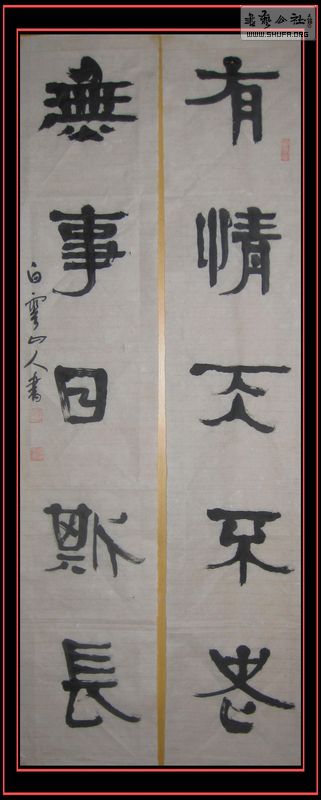 書藝公社
WWW.SHUFA.ORG
有情天不老
無事日斯長
白雲山人書